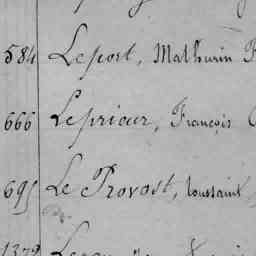 584 Leport, Mathurin
666 Leprieur, François
695 Le Provost, toussaint
1379